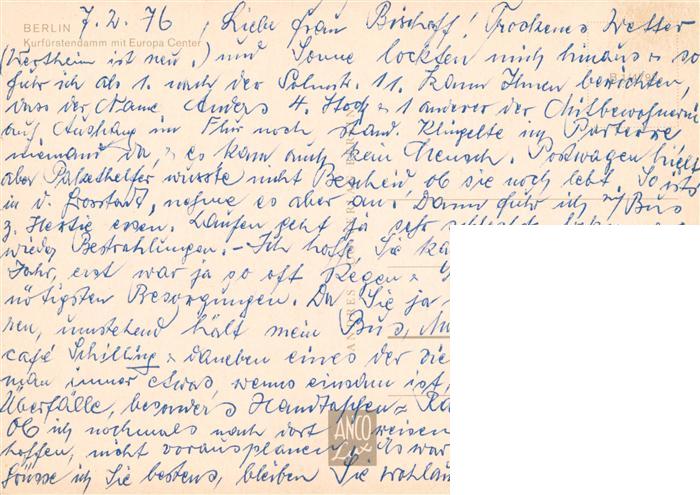 BERLIN
Kurfürstendamm mit Europa Center
7.2.76, Liebe Frau Bischoff! Trockenes Wetter
(Wertheim ist neu.) und Sonne lockten mich hinaus = so
fuhr ich als 1. nach der Solmstr. 11. Kann Ihnen berichten,
dass der Name Anders 4. Stock = 1 anderer der Mitbewohnerin
auf Aushang im Flur noch stand. Klingelte im Parterre
niemand da, = es kam auch kein Mensch. Postwagen hielt
aber Pakethelfer wusste nicht Bescheid, ob sie noch lebt. So ists
in d. Grosstadt, nehme es aber an. Dann fuhr ich m/ Bus
z. Hertie essen. Laufen geht ja sehr
wieder Bestrahlungen. - Ich hoffe, Sie
Jahr, erst war ja so oft Regen =
nötigsten Besorgungen. Da Sie ja
umstehend hält mein Bus,
café Schilling = daneben eines der
man immer etwas, wenns einsam ist,
Überfälle, besonders Handtaschen =
Ob ich nochmals nach dort
hoffen, nicht vorausplanen. Es war
Grüsse ich Sie bestens, bleiben Sie
ANCO
Lux